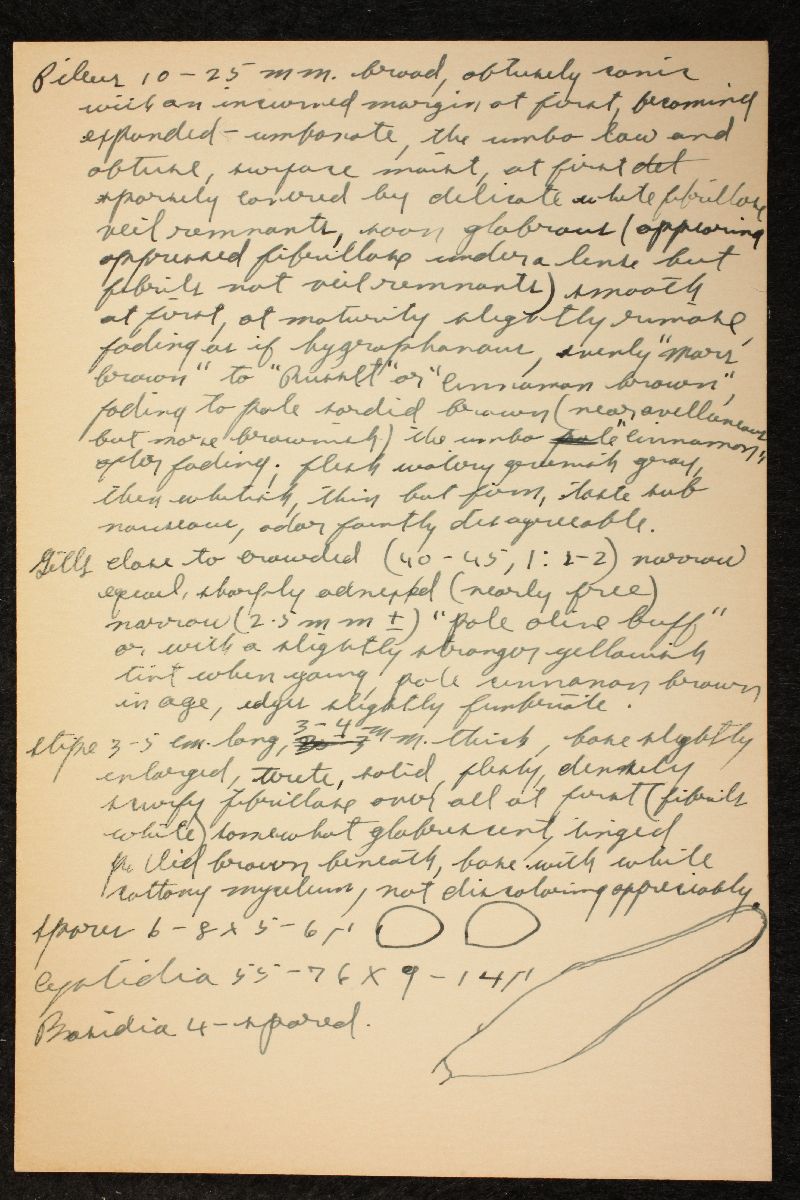 Pileus 10-25 mm. broad, obtusely conic
with an incurved margin at first, becoming
expanded-umbonate, the umbo low and
obtuse, surface moist, at first
sparsely covered by delicate white fibrillose
veil remnants, soon glabrous (appearing
appressed fibrillose under a lense but
fibrils not veil remnants) smooth
at first, at maturity slightly rimose,
fading as if hygrophanous, evenly "Mars
brown" to "Russet" or "cinnamon brown",
fading to pale sordid brown (near avellaneous
but more brownish) the umbo "cinnamon"
after fading; flesh watery greenish gray,
then whitish, thin but firm, taste sub
nauseous, odor faintly disagreeable.
Gills close to crowded (40-45, 1:1-2) narrow
equal, sharply adnexed (nearly free)
narrow (2.5 mm ±) "pale olive buff"
or with a slightly stronger yellowish
tint when young, pale cinnamon brown
in age, edges slightly fimbriate.
Stipe 3-5 cm. long, 3-4 mm. thick, base slightly
enlarged, terete, solid, fleshy, densely
scurfy fibrillose over all at first (fibrils
white) somewhat glabrescent, tinged
pallid brown beneath, base with white
cottony mycelium, not discoloring appreciably.
Spores 6-8 x 5-6 µ
Cystidia 55-76 x 9-14 µ
Basidia 4-spored.